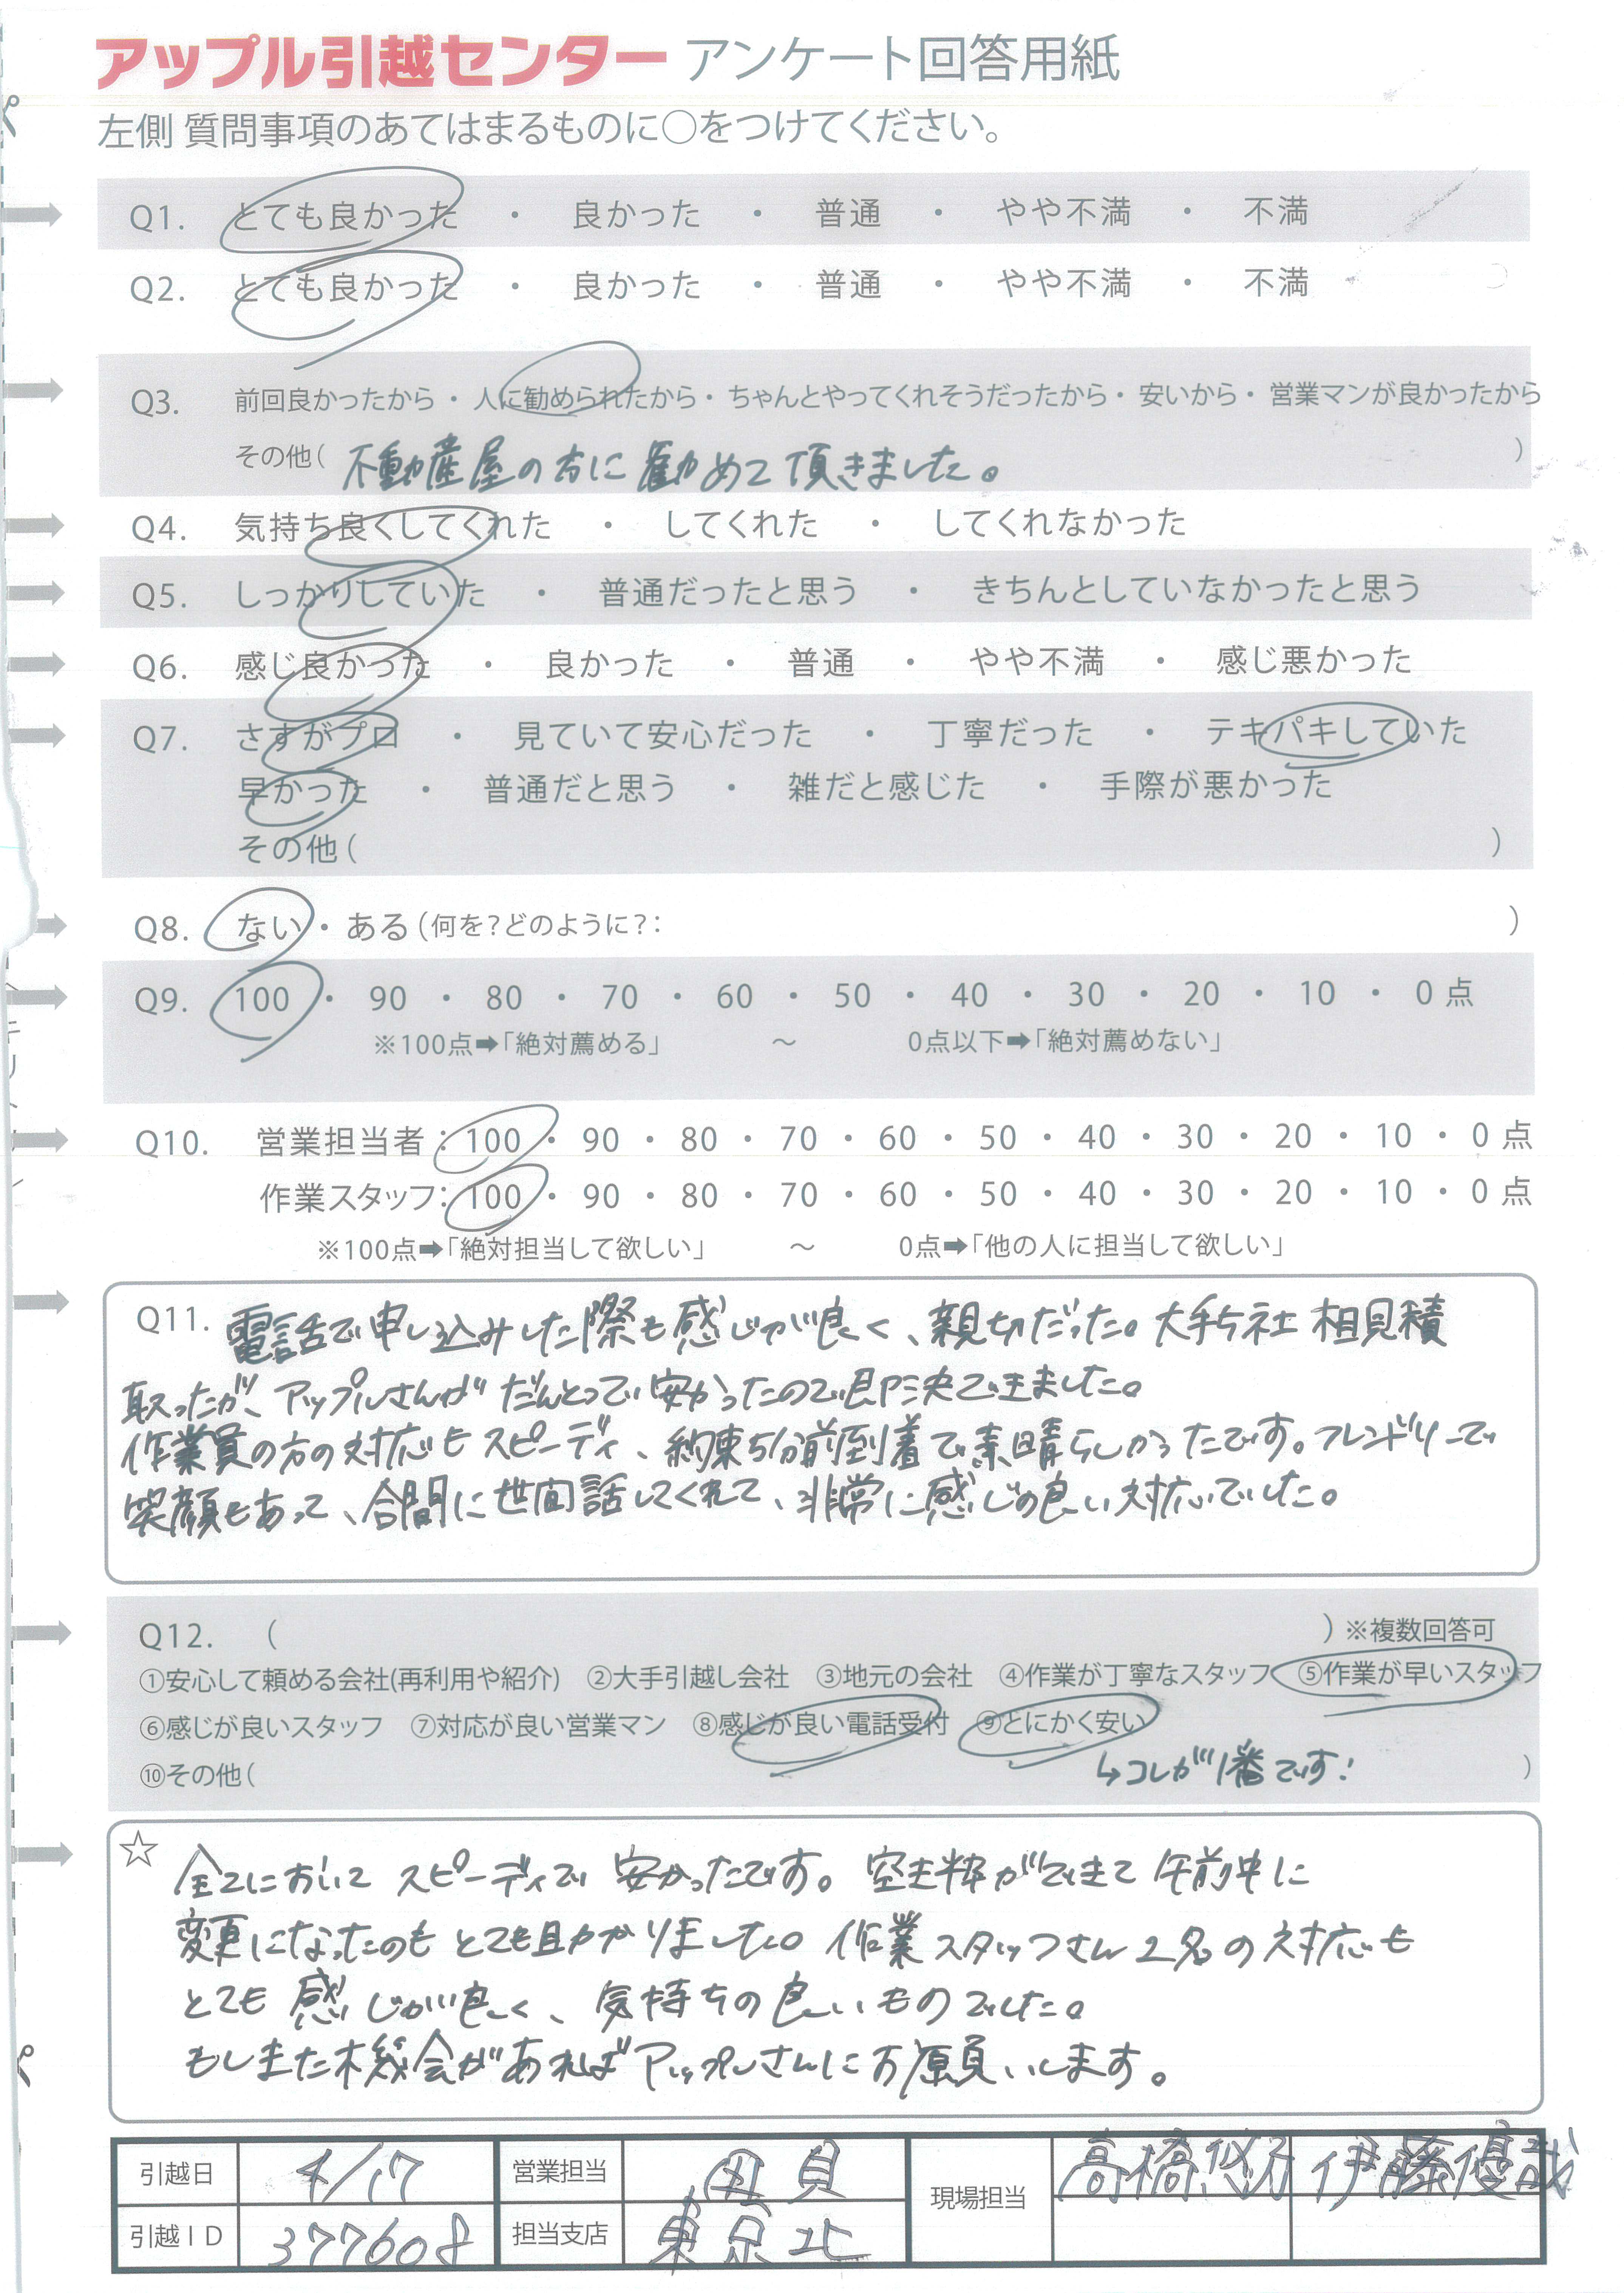 アップル引越センター アンケート回答用紙
左側 質問事項のあてはまるものに○をつけてください。
Q1. とても良かった ・ 良かった ・ 普通 ・ やや不満 ・ 不満
Q2. とても良かった ・ 良かった ・ 普通 ・ やや不満 ・ 不満
Q3. 前回良かったから・人に勧められたから・ちゃんとやってくれそうだったから・安いから・営業マンが良かったから
その他( 不動産屋の方に勧めて頂きました。 )
Q4. 気持ち良くしてくれた ・ してくれた ・ してくれなかった
Q5. しっかりしていた ・ 普通だったと思う ・ きちんとしていなかったと思う
Q6. 感じ良かった ・ 良かった ・ 普通 ・ やや不満 ・ 感じ悪かった
Q7. さすがプロ ・ 見ていて安心だった ・ 丁寧だった ・ テキパキしていた
早かった ・ 普通だと思う ・ 雑だと感じた ・ 手際が悪かった
その他( )
Q8. ない・ある(何を?どのように?: )
Q9. 100 ・ 90 ・ 80 ・ 70 ・ 60 ・ 50 ・ 40 ・ 30 ・ 20 ・ 10 ・ 0 点
※100点➡「絶対薦める」 ～ 0点以下➡「絶対薦めない」
Q10. 営業担当者:100・90・80・70・60・50・40・30・20・10・0 点
作業スタッフ:100・90・80・70・60・50・40・30・20・10・0 点
※100点➡「絶対担当して欲しい」 ～ 0点➡「他の人に担当して欲しい」
Q11. 電話で申し込みした際も感じが良く、親切だった。大手5社 相見積
取ったが、アップルさんがだんとつで安かったので即決できました。
作業員の方の対応もスピーディ、約束5分前到着で素晴らしかったです。フレンドリーで
笑顔もあって、合間に世間話してくれて、非常に感じの良い対応でした。
Q12. ( )※複数回答可
①安心して頼める会社(再利用や紹介) ②大手引越し会社 ③地元の会社 ④作業が丁寧なスタッフ ⑤作業が早いスタッフ
⑥感じが良いスタッフ ⑦対応が良い営業マン ⑧感じが良い電話受付 ⑨とにかく安い
⑩その他( ↳コレが1番です! )
☆ 全てにおいてスピーディで安かったです。空き枠ができて午前中に
変更になったのもとても助かりました。作業スタッフさん2名の対応も
とても感じが良く、気持ちの良いものでした。
もしまた機会があればアップルさんにお願いします。
引越日 4/17 営業担当 貝 現場担当 高橋悠 伊藤優哉
引越ID 377608 担当支店 東京北